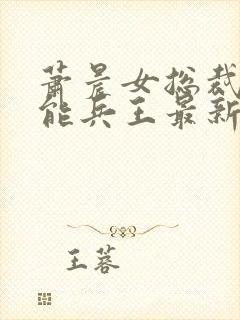 萧晨女总裁
能兵王最新
王蓉